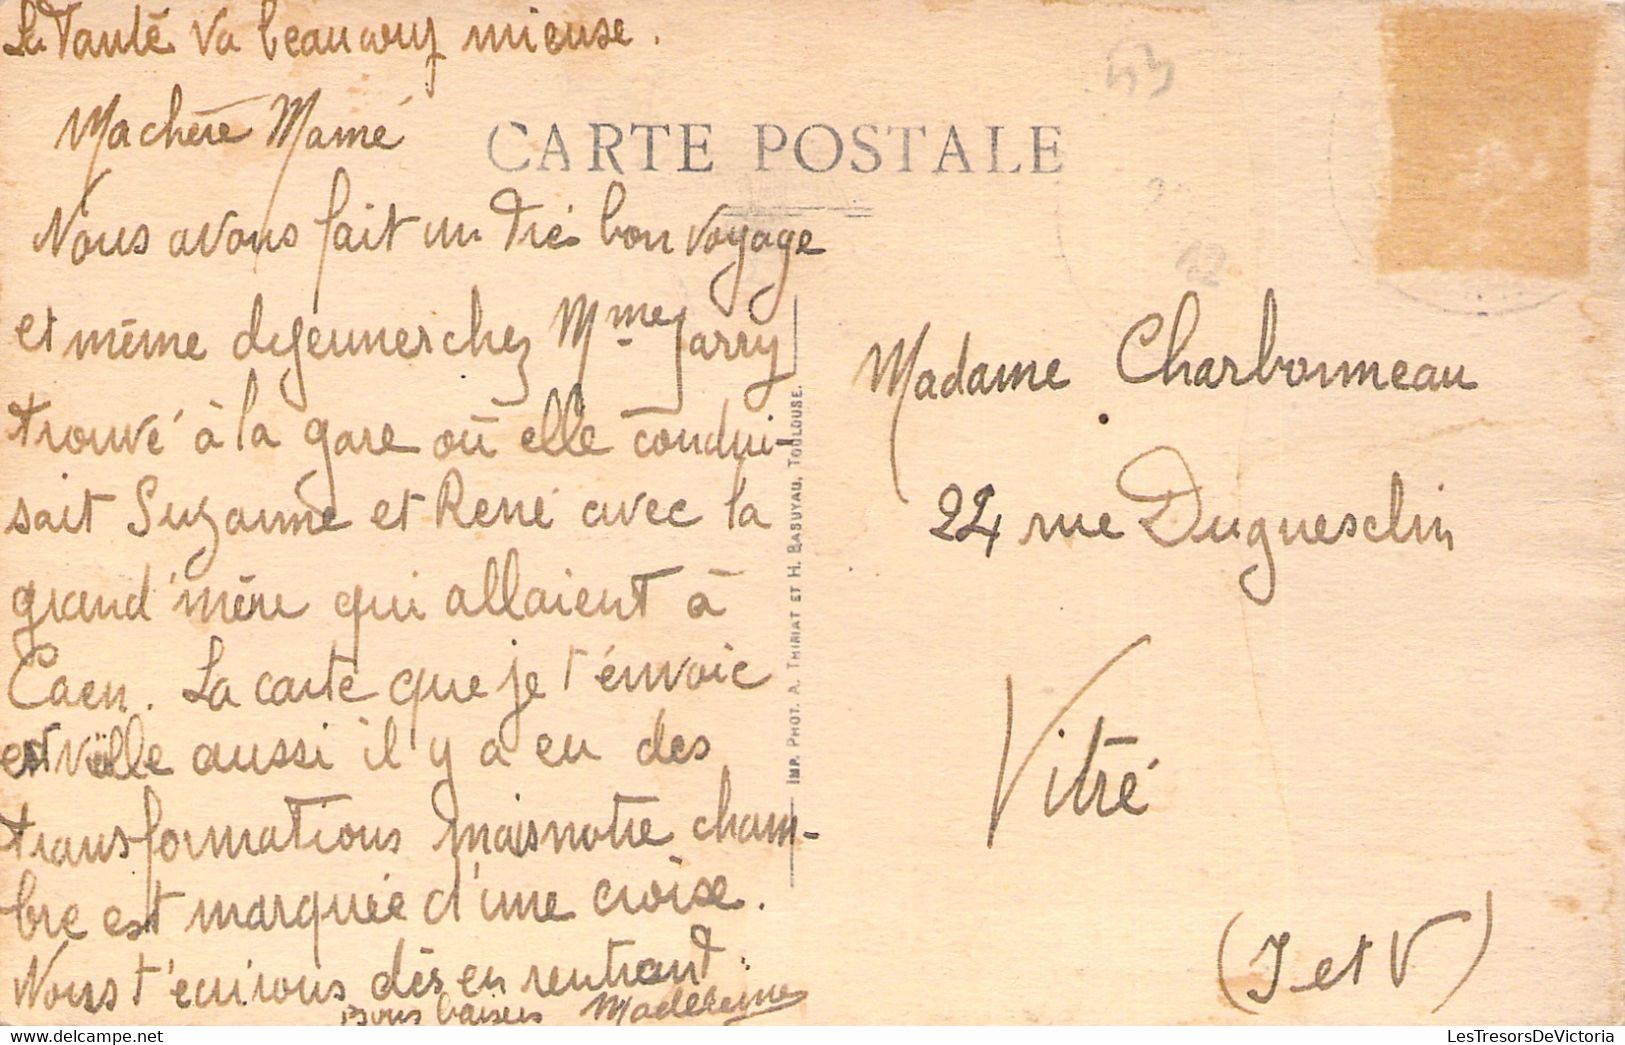 La Santé va beaucoup mieuse.
Ma chère Mamé
CARTE POSTALE
Nous avons fait un très bon voyage
et même dejeuner chez Mme Jarry
trouvé à la gare où elle condui-
sait Suzanne et René avec la
grand'mère qui allaient à
Caen. La carte que je t'envoie
est vielle aussi il y a eu des
transformations mais notre cham-
bre est marquée d'une croise.
Nous t'ecrirons dès en rentrant.
Bons baisers Madeleine
IMP. PHOT. A. THIRIAT ET H. BASUYAU, TOULOUSE.
Madame Charbonneau
24 rue Duguesclin
Vitré
(I et V)
LesTresorsDeVictoria